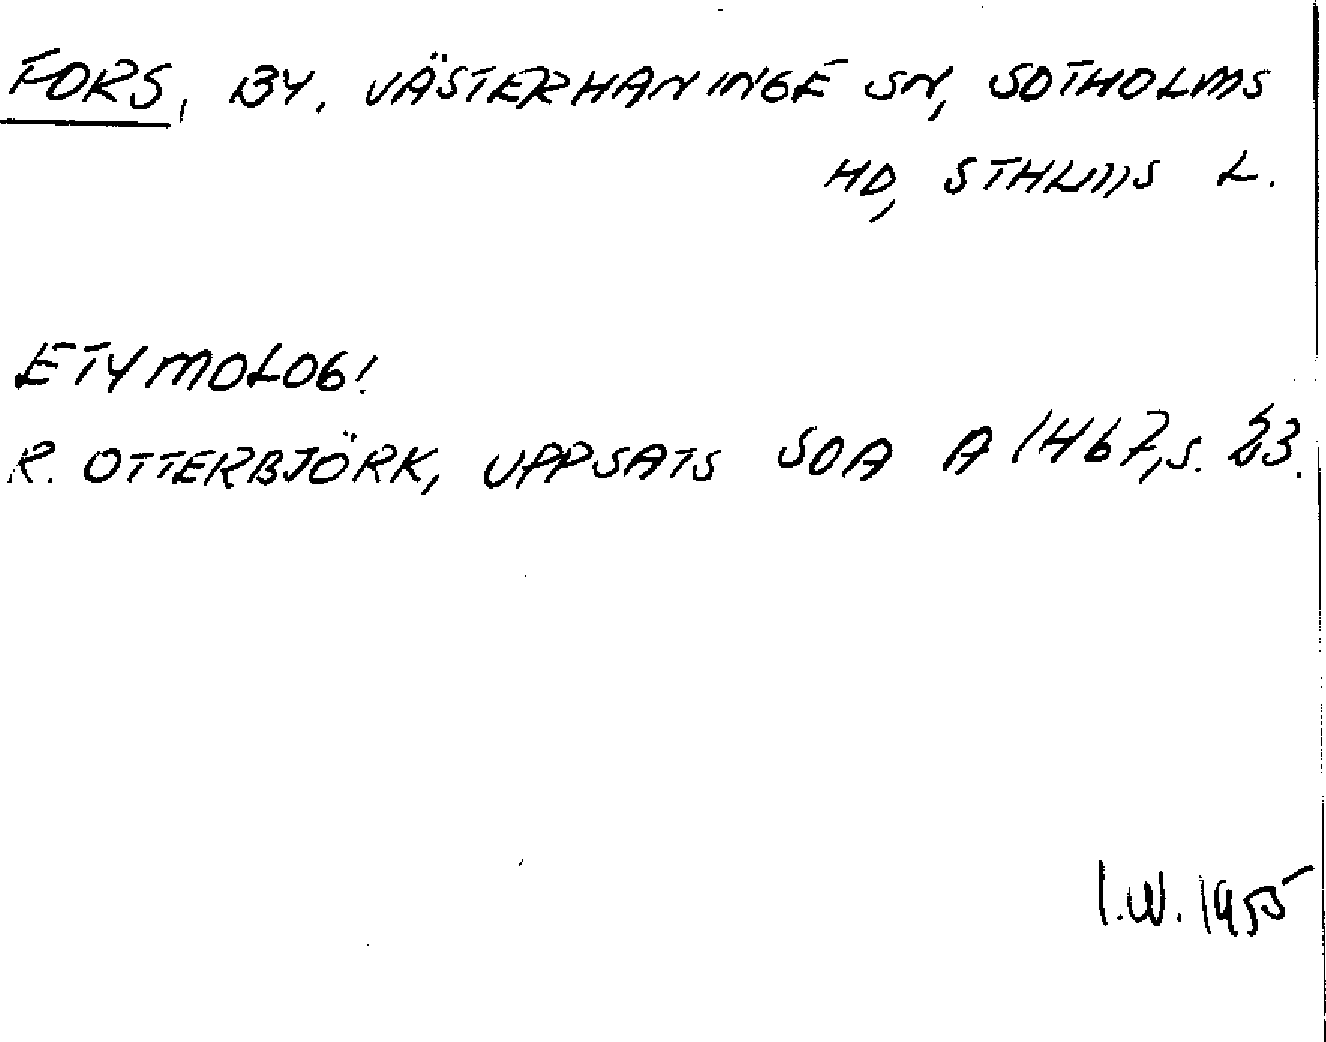 FORS, BY. VÄSTERHANINGE SN, SOTHOLMS
HD, STHLMS L.
ETYMOLOGI
R. OTTERBJÖRK, UPPSATS SOA A 1467, s. 33.
I.W. 1955